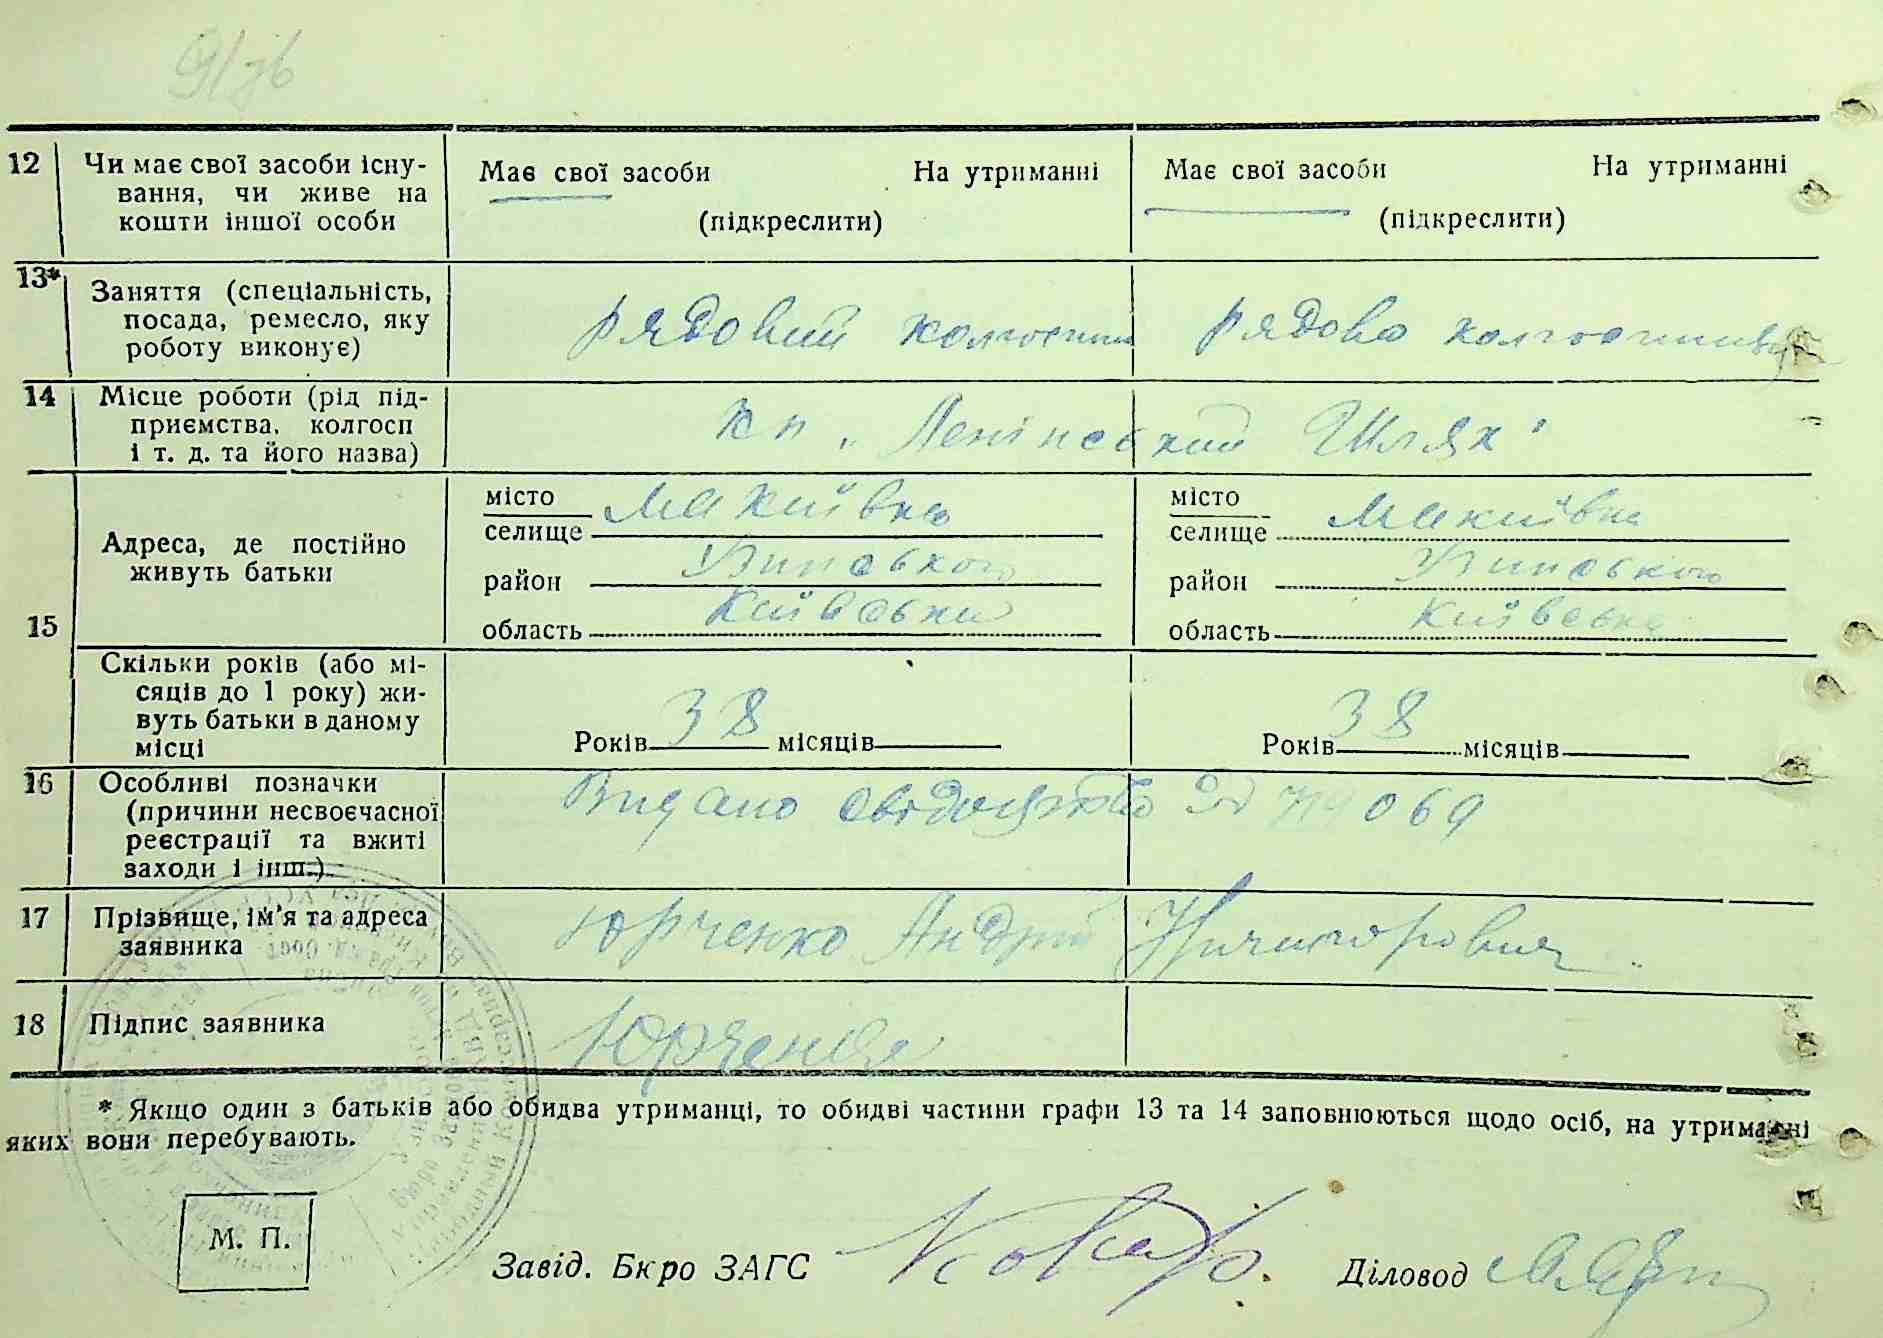 12 Чи має свої засоби існу-
вання, чи живе на
кошти іншої особи
Має свої засоби На утриманні
(підкреслити)
Має свої засоби На утриманні
(підкреслити)
13* Заняття (спеціальність,
посада, ремесло, яку
роботу виконує)
рядовий колгоспник
рядова колгоспниця
14 Місце роботи (рід під-
приємства, колгосп
і т. д. та його назва)
кп „Ленінський Шлях"
15 Адреса, де постійно
живуть батьки
місто
селище Макиївка
район
область Київська
місто
селище Макиївка
район
область Київська
Скільки років (або мі-
сяців до 1 року) жи-
вуть батьки в даному
місці
Років 38 місяців
Років 38 місяців
16 Особливі позначки
(причини несвоєчасної
реєстрації та вжиті
заходи і інш.)
Видано свідоцтво 069
17 Прізвище, ім'я та адреса
заявника
Юрченко Андрій Ничипорович
18 Підпис заявника
Юрченко
* Якщо один з батьків або обидва утриманці, то обидві частини графи 13 та 14 заповнюються щодо осіб, на утриманні
яких вони перебувають.
М. П.
Завід. Бюро ЗАГС
Діловод